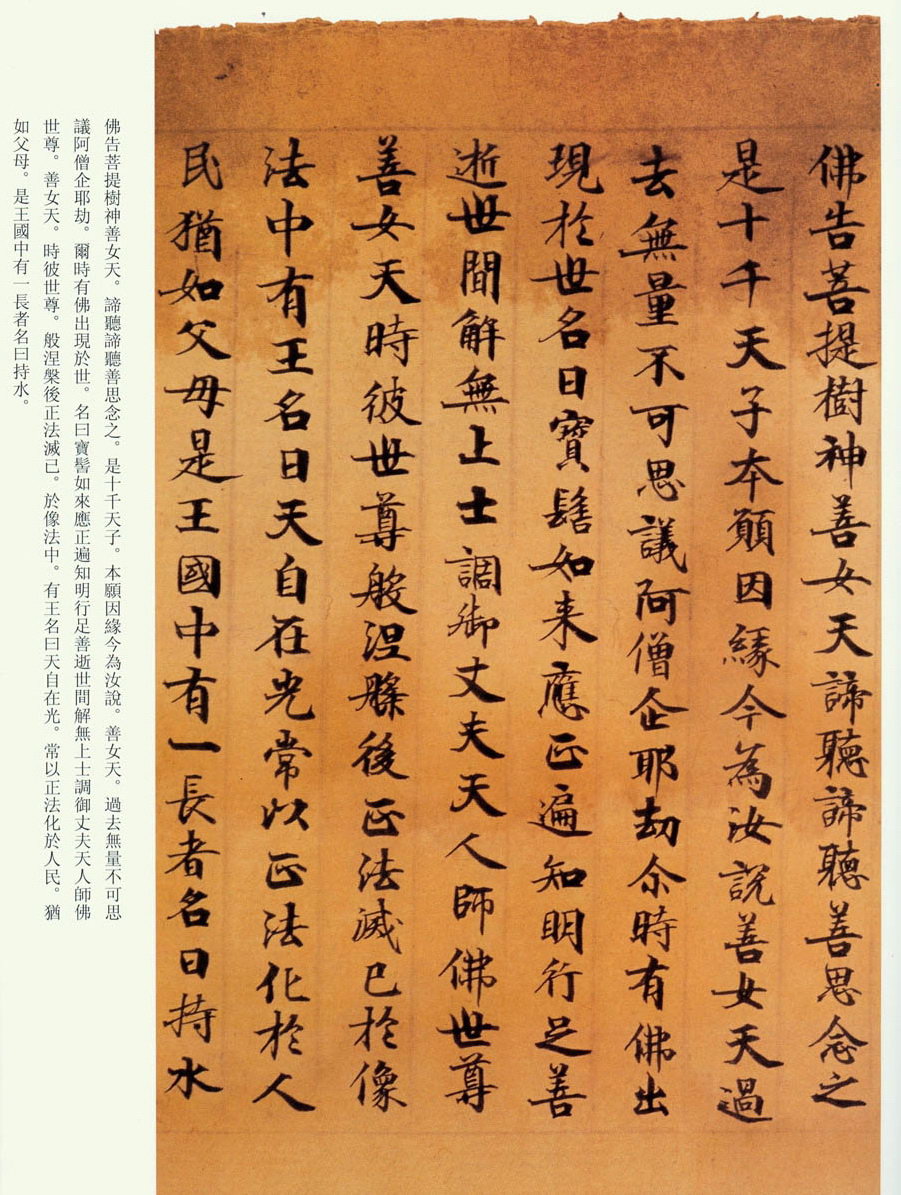 佛告菩提樹神善女天諦聽諦聽善思念之
是十千天子本願因緣今為汝說善女天過
去無量不可思議阿僧企耶劫尒時有佛出
現於世名曰寶髻如来應正遍知明行足善
逝世間解無上士調御丈夫天人師佛世尊
善女天時彼世尊般涅槃後正法滅已於像
法中有王名曰天自在光常以正法化於人
民猶如父母是王國中有一長者名曰持水
佛告菩提樹神善女天。諦聽諦聽善思念之。是十千天子。本願因緣今為汝說。善女天。過去無量不可思
議阿僧企耶劫。爾時有佛出現於世。名曰寶髻如來應正遍知明行足善逝世間解無上士調御丈夫天人師佛
世尊。善女天。時彼世尊。般涅槃後正法滅已。於像法中。有王名曰天自在光。常以正法化於人民。猶
如父母。是王國中有一長者名曰持水。